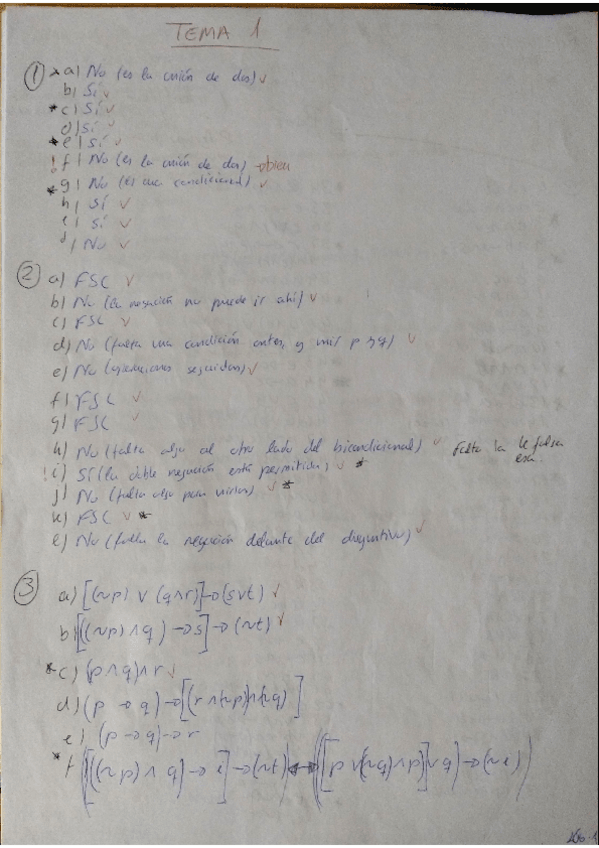 TEMA 1
① a) No (es la unión de dos) ✓
b) Sí ✓
* c) Sí ✓
d) Sí ✓
* e) Sí ✓
! f) No (es la unión de dos) → bien
* g) No (es una condicional) ✓
h) Sí ✓
i) Sí ✓
j) No ✓
② a) FSC ✓
b) No (la negación no puede ir ahí) ✓
c) FSC ✓
d) No (falta una condición antes, y unir p y q) ✓
e) No (operaciones seguidas) ✓
f) FSC ✓
g) FSC ✓
h) No (falta algo al otro lado del bicondicional) ✓ Falta la
! i) Sí (la doble negación está permitida) ✓ *
j) No (falta algo para unirlos) ✓ *
k) FSC ✓ *
l) No (falla la negación delante del disyuntivo) ✓
③ a) [(~p) ∨ (q∧r)] → (s∨t) ✓
b) [((~p)∧q) → s] → (~t) ✓
* c) (p∧q)∧r ✓
d) (p → q) → [(r∧(~p))∧(~q)]
e) (p → q) → r
* f) ([((~p)∧q) → s] → (~t)) ↔ ([p∨((~q)∧p)]∨q) → (~s)